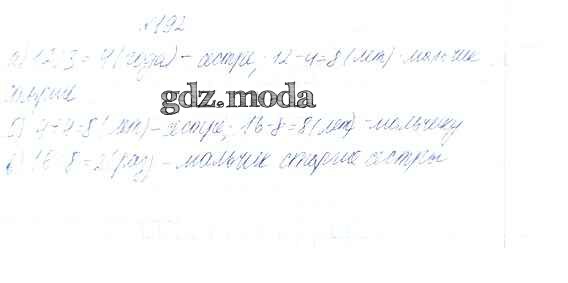 №192
а) 12:3=4 (года) - сестре; 12-4=8 (лет) мальчик
старше
gdz.moda
б) 4+4=8 (лет) - сестре; 16-8=8 (лет) - мальчику
в) 16:8=2 (раз) - мальчик старше сестры